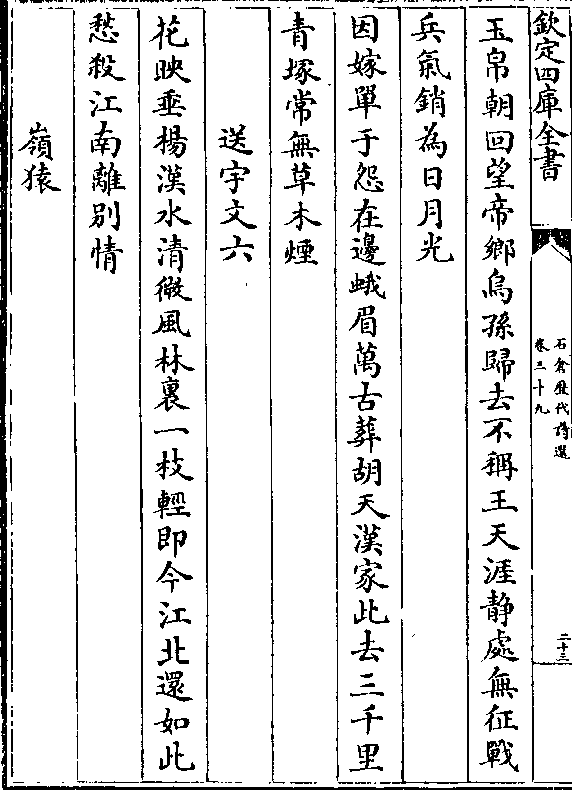 欽定四庫全書
石倉歷代詩選
卷三十九
二十三
玉帛朝回望帝鄉烏孫歸去不稱王天涯静處無征戰
兵氣銷為日月光
因嫁單于怨在邊蛾眉萬古葬胡天漢家此去三千里
青塚常無草木煙
送宇文六
花映垂楊漢水清微風林裏一枝輕即今江北還如此
愁殺江南離别情
嶺猿